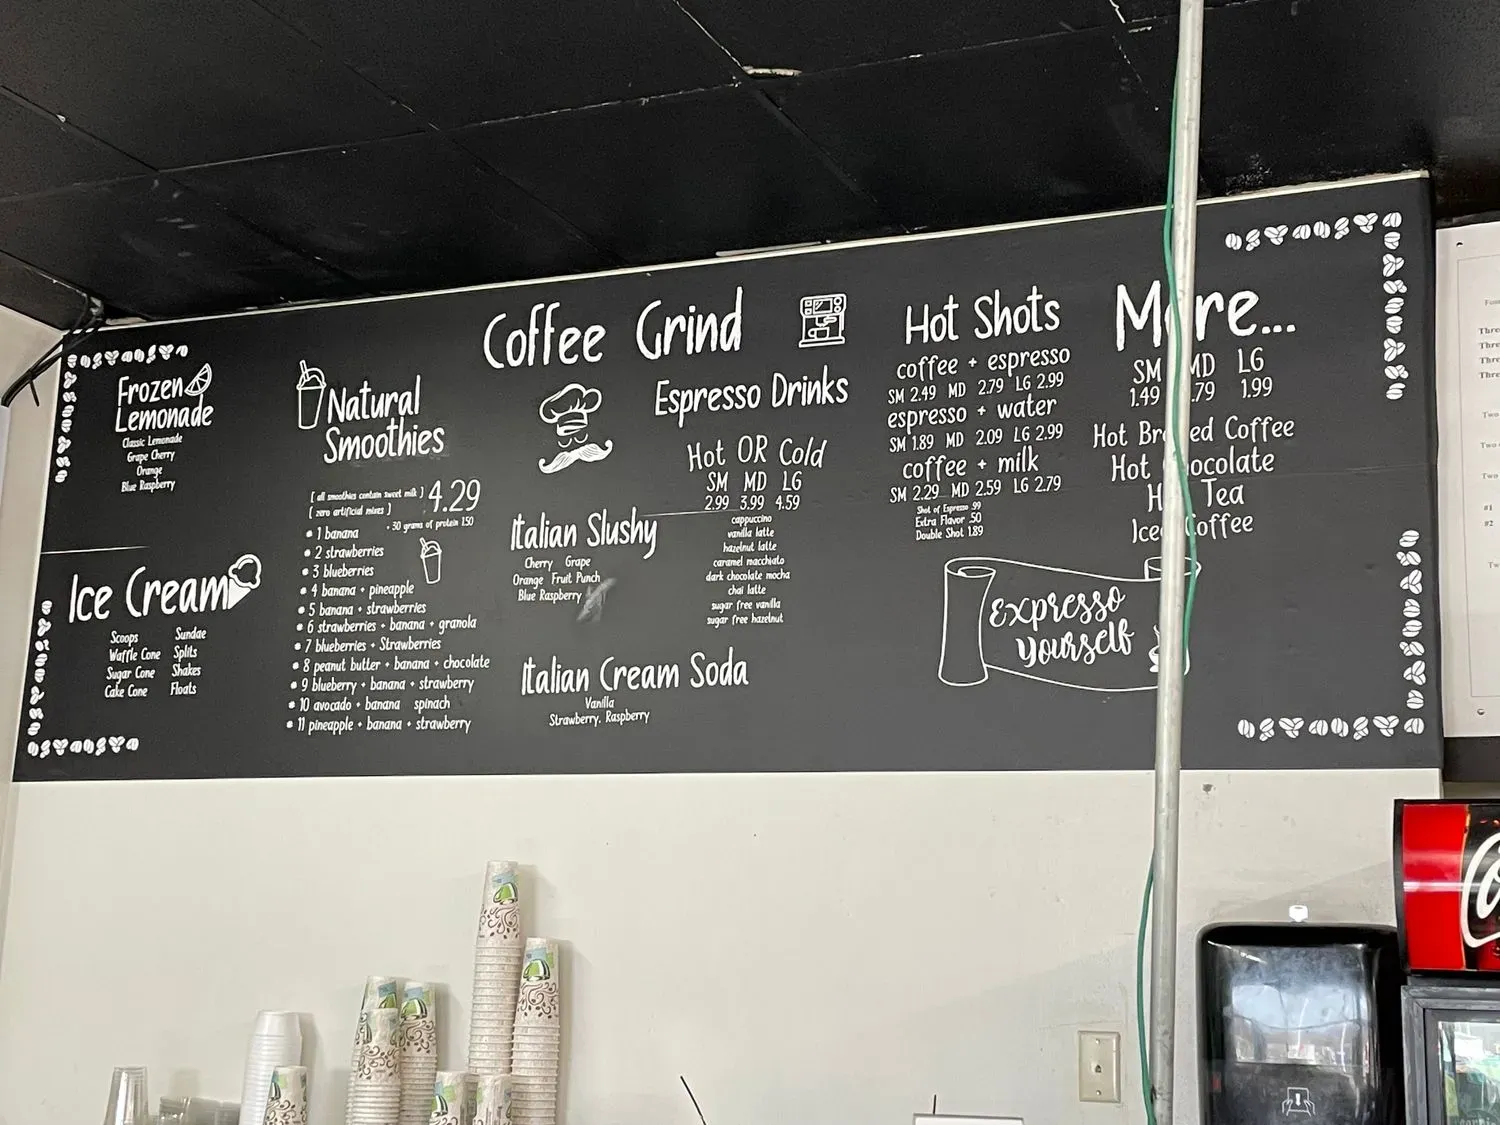 Coffee Grind
Frozen
Lemonade
Classic Lemonade
Grape Cherry
Orange
Blue Raspberry
Ice Cream
Scoops Sundae
Waffle Cone Splits
Sugar Cone Shakes
Cake Cone Floats
Natural
Smoothies
[ all smoothies contain sweet milk ] 4.29
[ zero artificial mixes ]
• 30 grams of protein 1.50
• 1 banana
• 2 strawberries
• 3 blueberries
• 4 banana + pineapple
• 5 banana + strawberries
• 6 strawberries + banana + granola
• 7 blueberries + Strawberries
• 8 peanut butter + banana + chocolate
• 9 blueberry + banana + strawberry
• 10 avocado + banana spinach
• 11 pineapple + banana + strawberry
Italian Slushy
Cherry Grape
Orange Fruit Punch
Blue Raspberry
Italian Cream Soda
Vanilla
Strawberry. Raspberry
Espresso Drinks
Hot OR Cold
SM MD LG
2.99 3.99 4.59
cappuccino
vanilla latte
hazelnut latte
caramel macchiato
dark chocolate mocha
chai latte
sugar free vanilla
sugar free hazelnut
Hot Shots
coffee + espresso
SM 2.49 MD 2.79 LG 2.99
espresso + water
SM 1.89 MD 2.09 LG 2.99
coffee + milk
SM 2.29 MD 2.59 LG 2.79
Shot of Espresso .99
Extra Flavor .50
Double Shot 1.89
More...
SM MD LG
1.49 .79 1.99
Hot Brewed Coffee
Hot Chocolate
Hot Tea
Iced Coffee
expresso
yourself
Three
Three
Three
Two
Two
Two
#1
#2